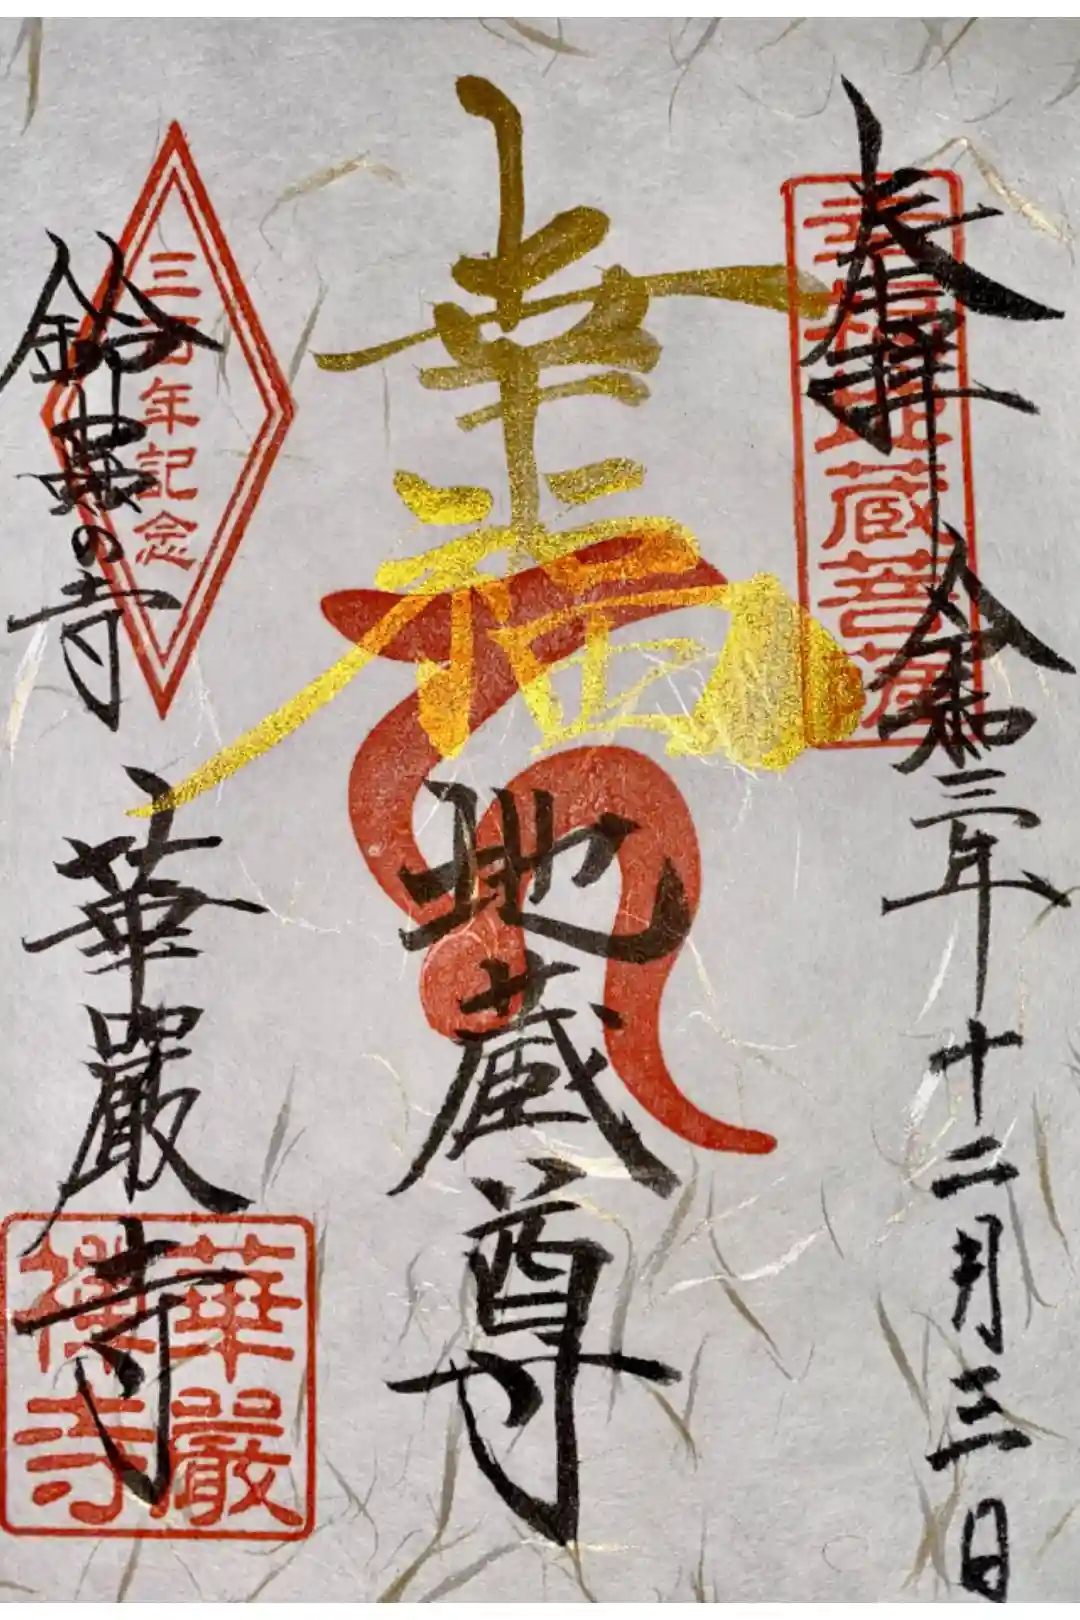 奉拝 令和三年十二月三日
幸福地蔵菩薩
幸福
地蔵尊
三百年記念
鈴蟲の寺
華嚴寺
華嚴禪寺